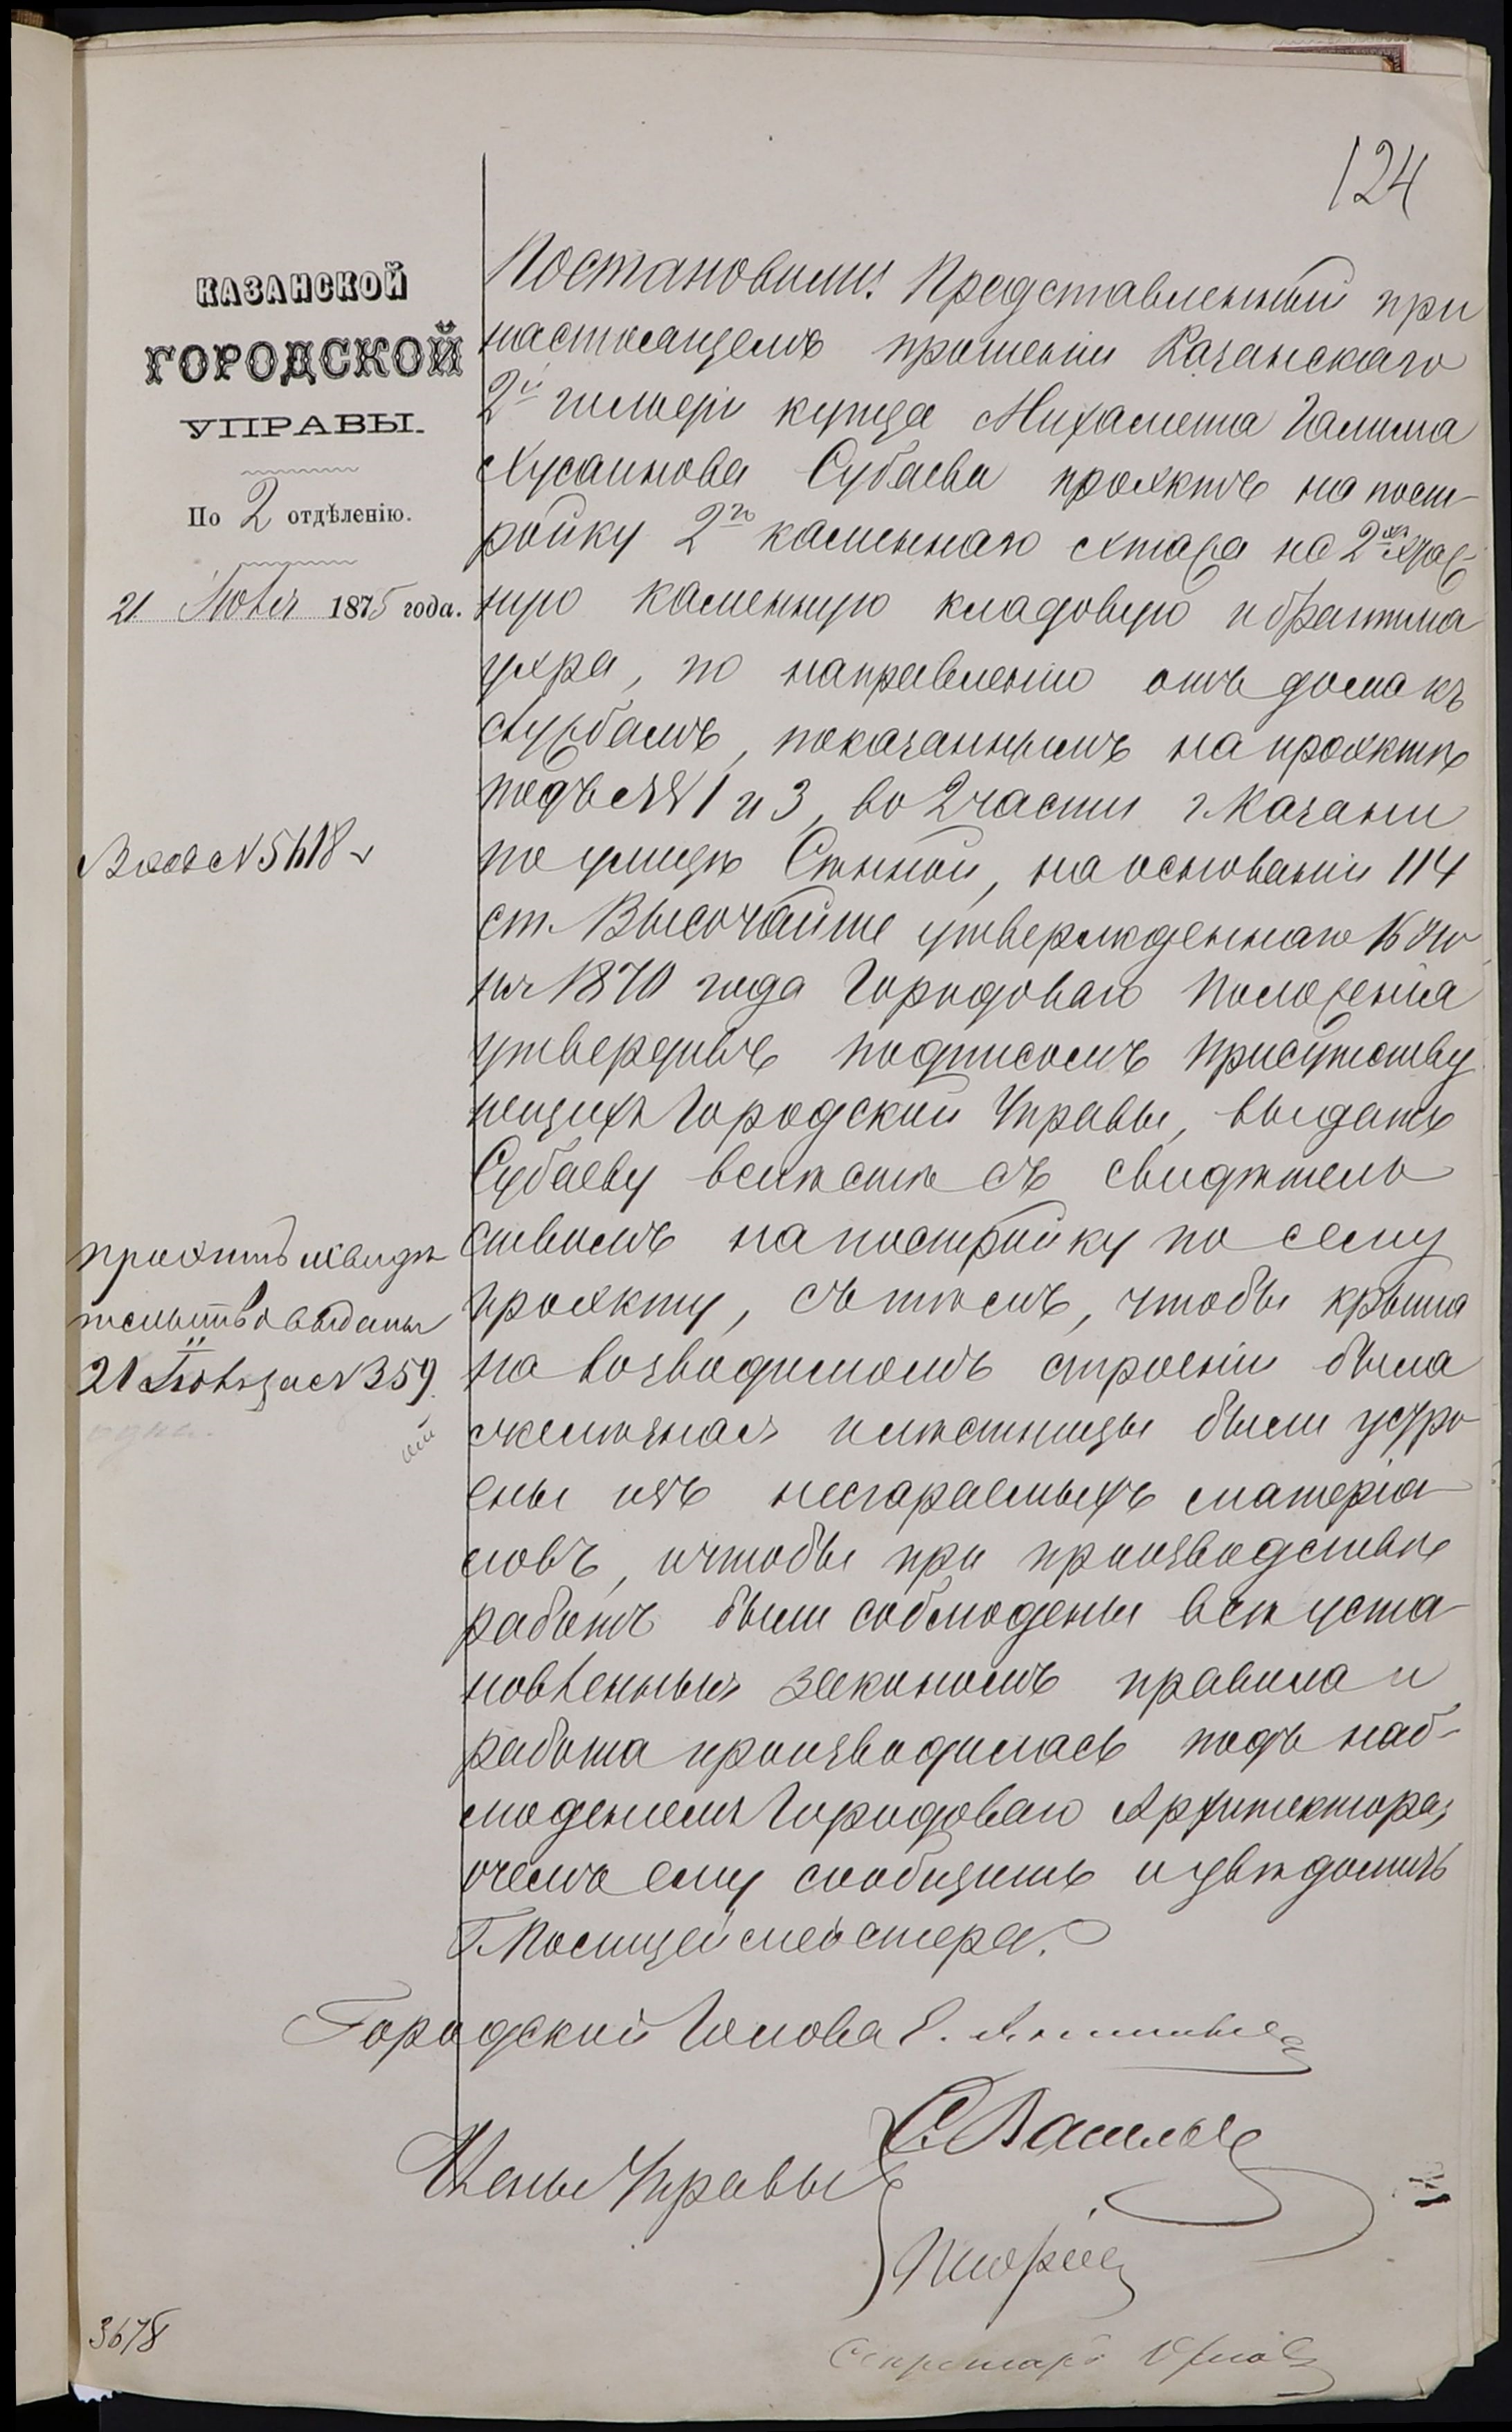 124
КАЗАНСКОЙ
ГОРОДСКОЙ
УПРАВЫ.
По 2 отдѣленію.
21 Іюля 1875 года.
Постановили: Представленный при
настоящемъ прошеніи Казанскаго
2й гильдіи купца Мухаметa Галима
Хусаинова Субаева проэктъ на пост-
ройку 2го каменнаго этажа на 2хъ этаж-
ную каменную кладовую и брантма
уэра, по направленію отъ дома къ
службамъ, показаннымъ на проэктѣ
подъ №№ 1 и 3, во 2 части г. Казани
по улицѣ Сѣнной, на основаніи 114
ст. Высочайше утвержденнаго 16 Ію
ня 1870 года Городоваго Положенія
утвердивъ подписомъ присутству
ющихъ Городской Управы, выдать
Субаеву вмѣстѣ съ свидѣтель
ствомъ на постройку по сему
проэкту, съ тѣмъ, чтобы крыша
на возводимомъ строеніи была
желѣзная и лѣстницы были устро
ены изъ несгараемыхъ матеріа
ловъ, и чтобы при производствѣ
работъ были соблюдены всѣ уста
новленныя закономъ правила и
работа производилась подъ наб-
люденіемъ Городоваго Архитектора,
о чемъ ему сообщить и увѣдомить
Г. Полицеймейстера.
Вход. № 5418
проэктъ и свидѣ
тельство выданы
21 Іюля за № 359.
Городской Голова
Члены Управы
С. Васильев
Секретарь
3678